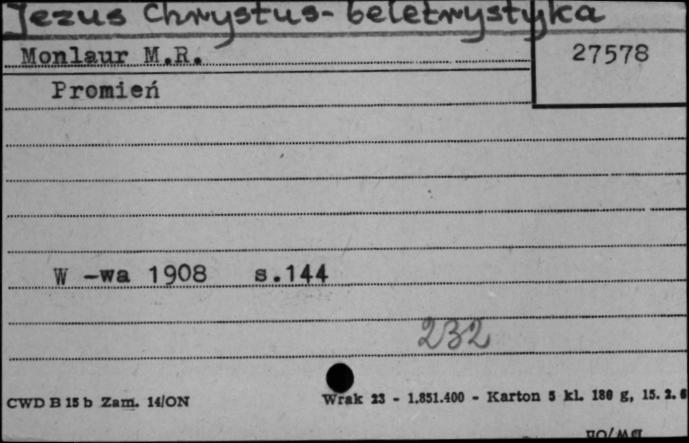 Jezus Chrystus - beletrystyka
Monlaur M.R.
27578
Promień
W -wa 1908 s.144
232
CWD B 15 b Zam. 14/ON
Wrak 23 - 1.851.400 - Karton 5 kl. 180 g, 15. 2. 6